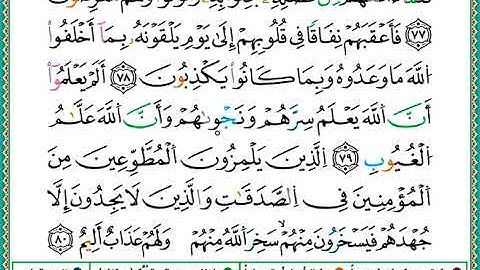 فَأَعْقَبَهُمْ نِفَاقًا فِي قُلُوبِهِمْ إِلَىٰ يَوْمِ يَلْقَوْنَهُ بِمَا أَخْلَفُوا
اللَّهَ مَا وَعَدُوهُ وَبِمَا كَانُوا يَكْذِبُونَ ٧٨ أَلَمْ يَعْلَمُوا
أَنَّ اللَّهَ يَعْلَمُ سِرَّهُمْ وَنَجْوَاهُمْ وَأَنَّ اللَّهَ عَلَّامُ
الْغُيُوبِ ٧٩ الَّذِينَ يَلْمِزُونَ الْمُطَّوِّعِينَ مِنَ
الْمُؤْمِنِينَ فِي الصَّدَقَاتِ وَالَّذِينَ لَا يَجِدُونَ إِلَّا
جُهْدَهُمْ فَيَسْخَرُونَ مِنْهُمْ ۙ سَخِرَ اللَّهُ مِنْهُمْ وَلَهُمْ عَذَابٌ أَلِيمٌ ٨٠